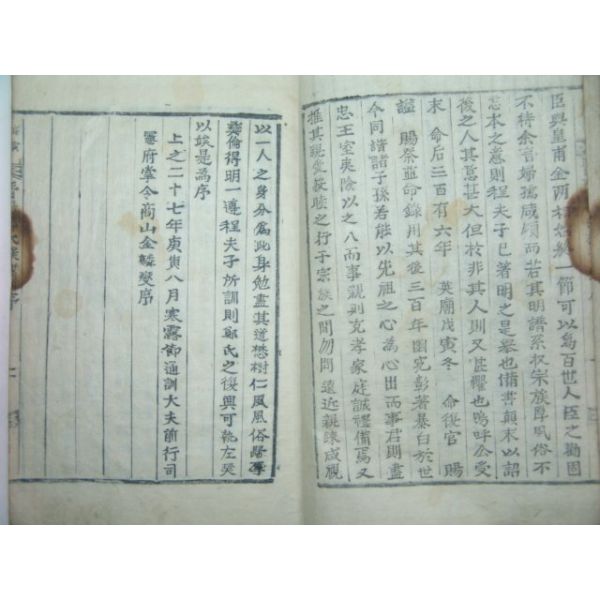 臣與皇甫金两相始終一節可以為百世人臣之勸固
不待余言婦孺咸頌而若其明譜系収宗族厚風俗不
忘本之意則程夫子已著明之是擧也備書顚末以詔
後之人其意甚大但於非其人則又 懼也嗚呼公受
末 命后三百有六年 英廟戊寅冬 命復官 賜
謚 賜祭 命錄用其後三百年幽寃彰著暴白於世
今同譜諸子孫若能以先祖之心為心出而事君則盡
忠王室夷險以之入而事親則克孝家庭誠禮備焉又
推其親愛敦睦之行于宗族之間勿問 遠近親踈咸視
以一人之身分為此身勉盡其道懋樹仁風風俗 厚
彛倫得明一遵程夫子所訓則鄭氏之復興可執左契
以竢是為序
上之二十七年庚寅八月寒露節通訓大夫前行司
憲府掌令商山金 燮序